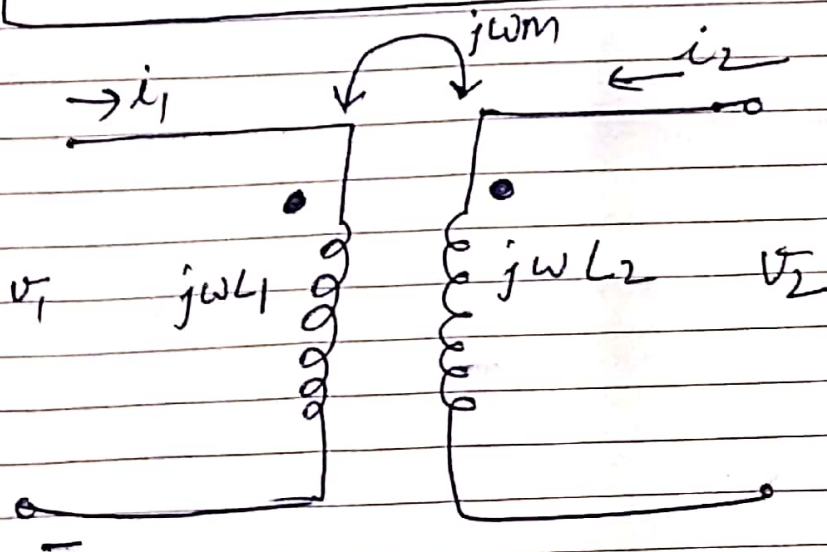 jωm
→i₁
←i₂
v₁
jωL₁
jωL₂
v₂
−